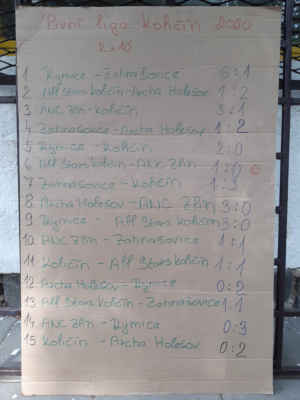 První liga Kohčín 2000
2x10
1 Rymice - Zahnašovice 5:1
2 All Stars Kohčín - Archa Holešov 1:2
3 ANC Zlín - Kohčín 3:1
4 Zahnašovice - Archa Holešov 1:2
5 Rymice - Kohčín 2:0
6 All Stars Kohčín - ANC Zlín 1:0
7 Zahnašovice - Kohčín 1:3
8 Archa Holešov - ANC Zlín 3:0
9 Rymice - All Stars Kohčín 3:0
10 ANC Zlín - Zahnašovice 1:1
11 Kohčín - All Stars Kohčín 1:1
12 Archa Holešov - Rymice 0:2
13 All Stars Kohčín - Zahnašovice 1:1
14 ANC Zlín - Rymice 0:3
15 Kohčín - Archa Holešov 0:2